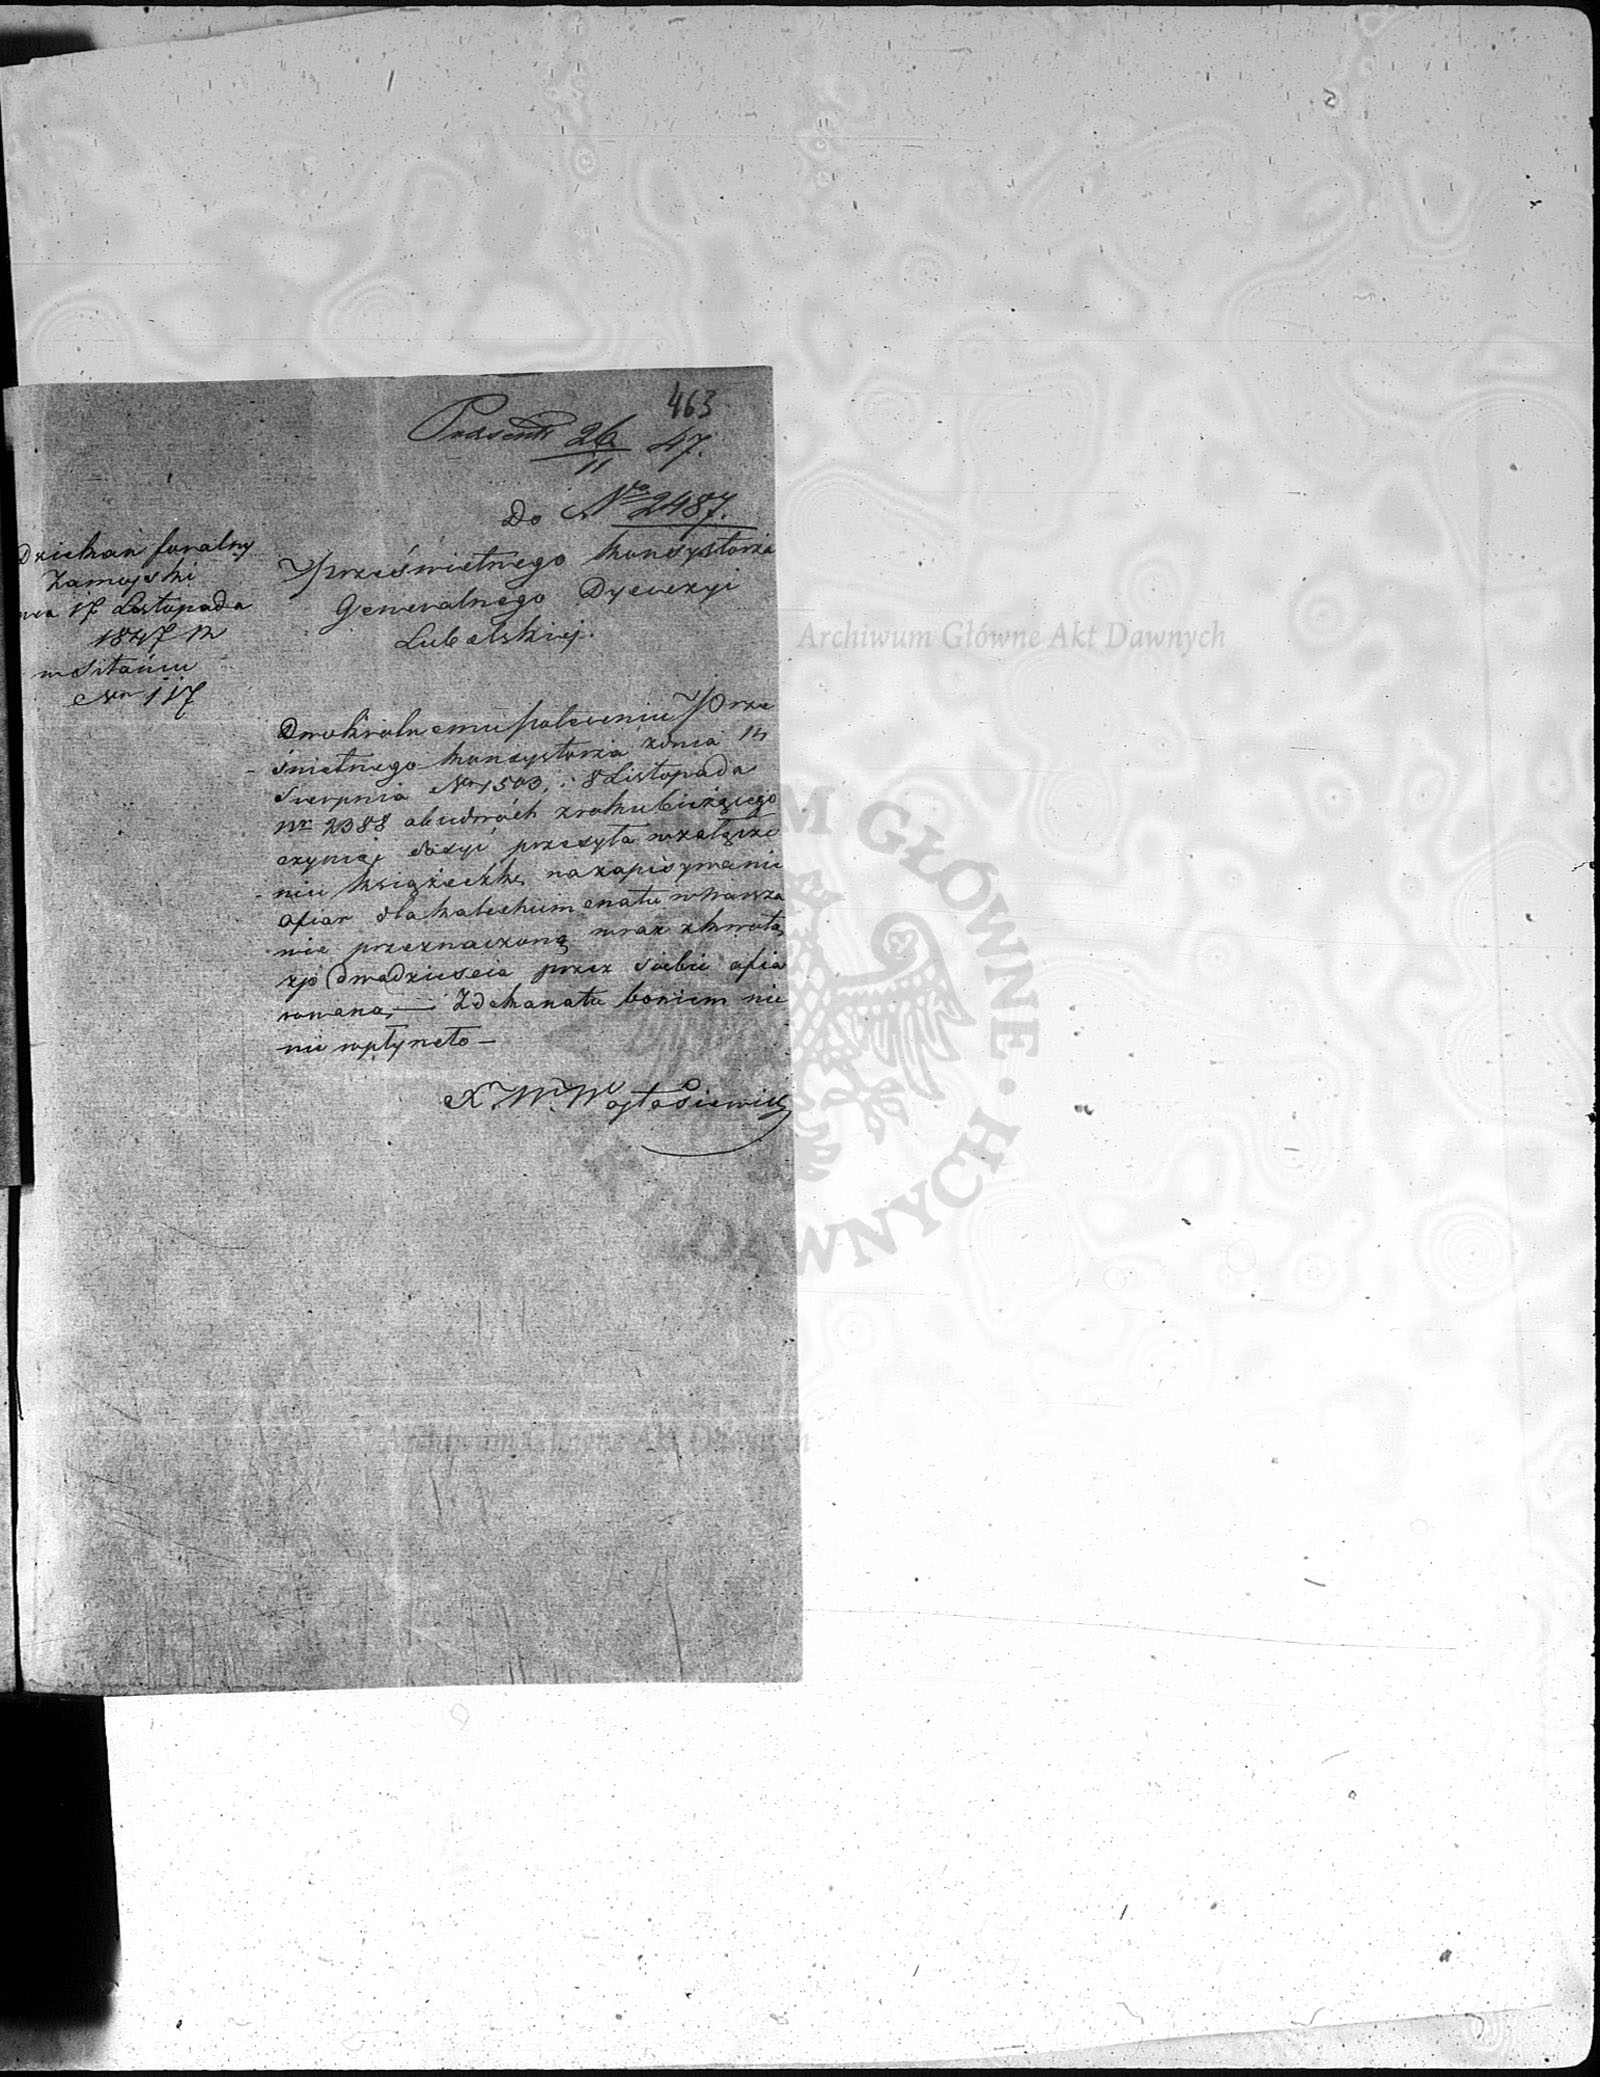 463
Praesent 26/11 47.
Do Nro 2487.
Dziekan foralny
Zamojski
dnia 17 Listopada
1847 r
w Sitańcu
Nro 117
Prześwietnego Konsystorza
Generalnego Dyecezyi
Lubelskiej.
Dwukrolnemu poleceniu Prze
świetnego Konsystorza zdnia 14
Sierpnia Nro 1503, i 8 Listopada
Nr 2388 obudwóch zroku bieżącego
czyniąc dosyć przesyła wzałącze
niu książeczkę nazapisywanie
ofiar dla katechumenatu wWarsza
wie przeznaczoną wraz zkwotą
zł (dwadziescia przez siebie ofia
rowaną, — Zdekanatu bowiem nic
nie wpłyneło —
X. W. Wojtasiewicz
Archiwum Główne Akt Dawnych
ARCHIWUM GŁÓWNE · AKT DAWNYCH
Archiwum Główne Akt Dawnych